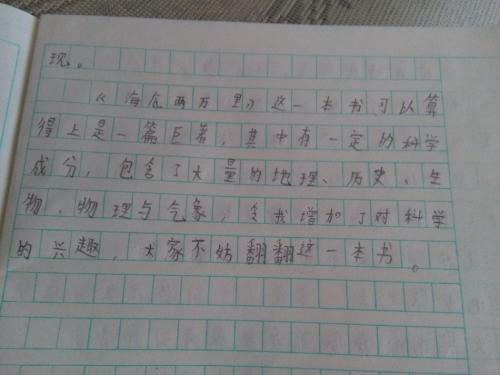 现。
《海底两万里》这一本书可以算
得上是一篇巨著，其中有一定的科学
成分，包含了大量的地理、历史、生
物、物理与气象，令我增加了对科学
的兴趣，大家不妨翻翻这一本书。